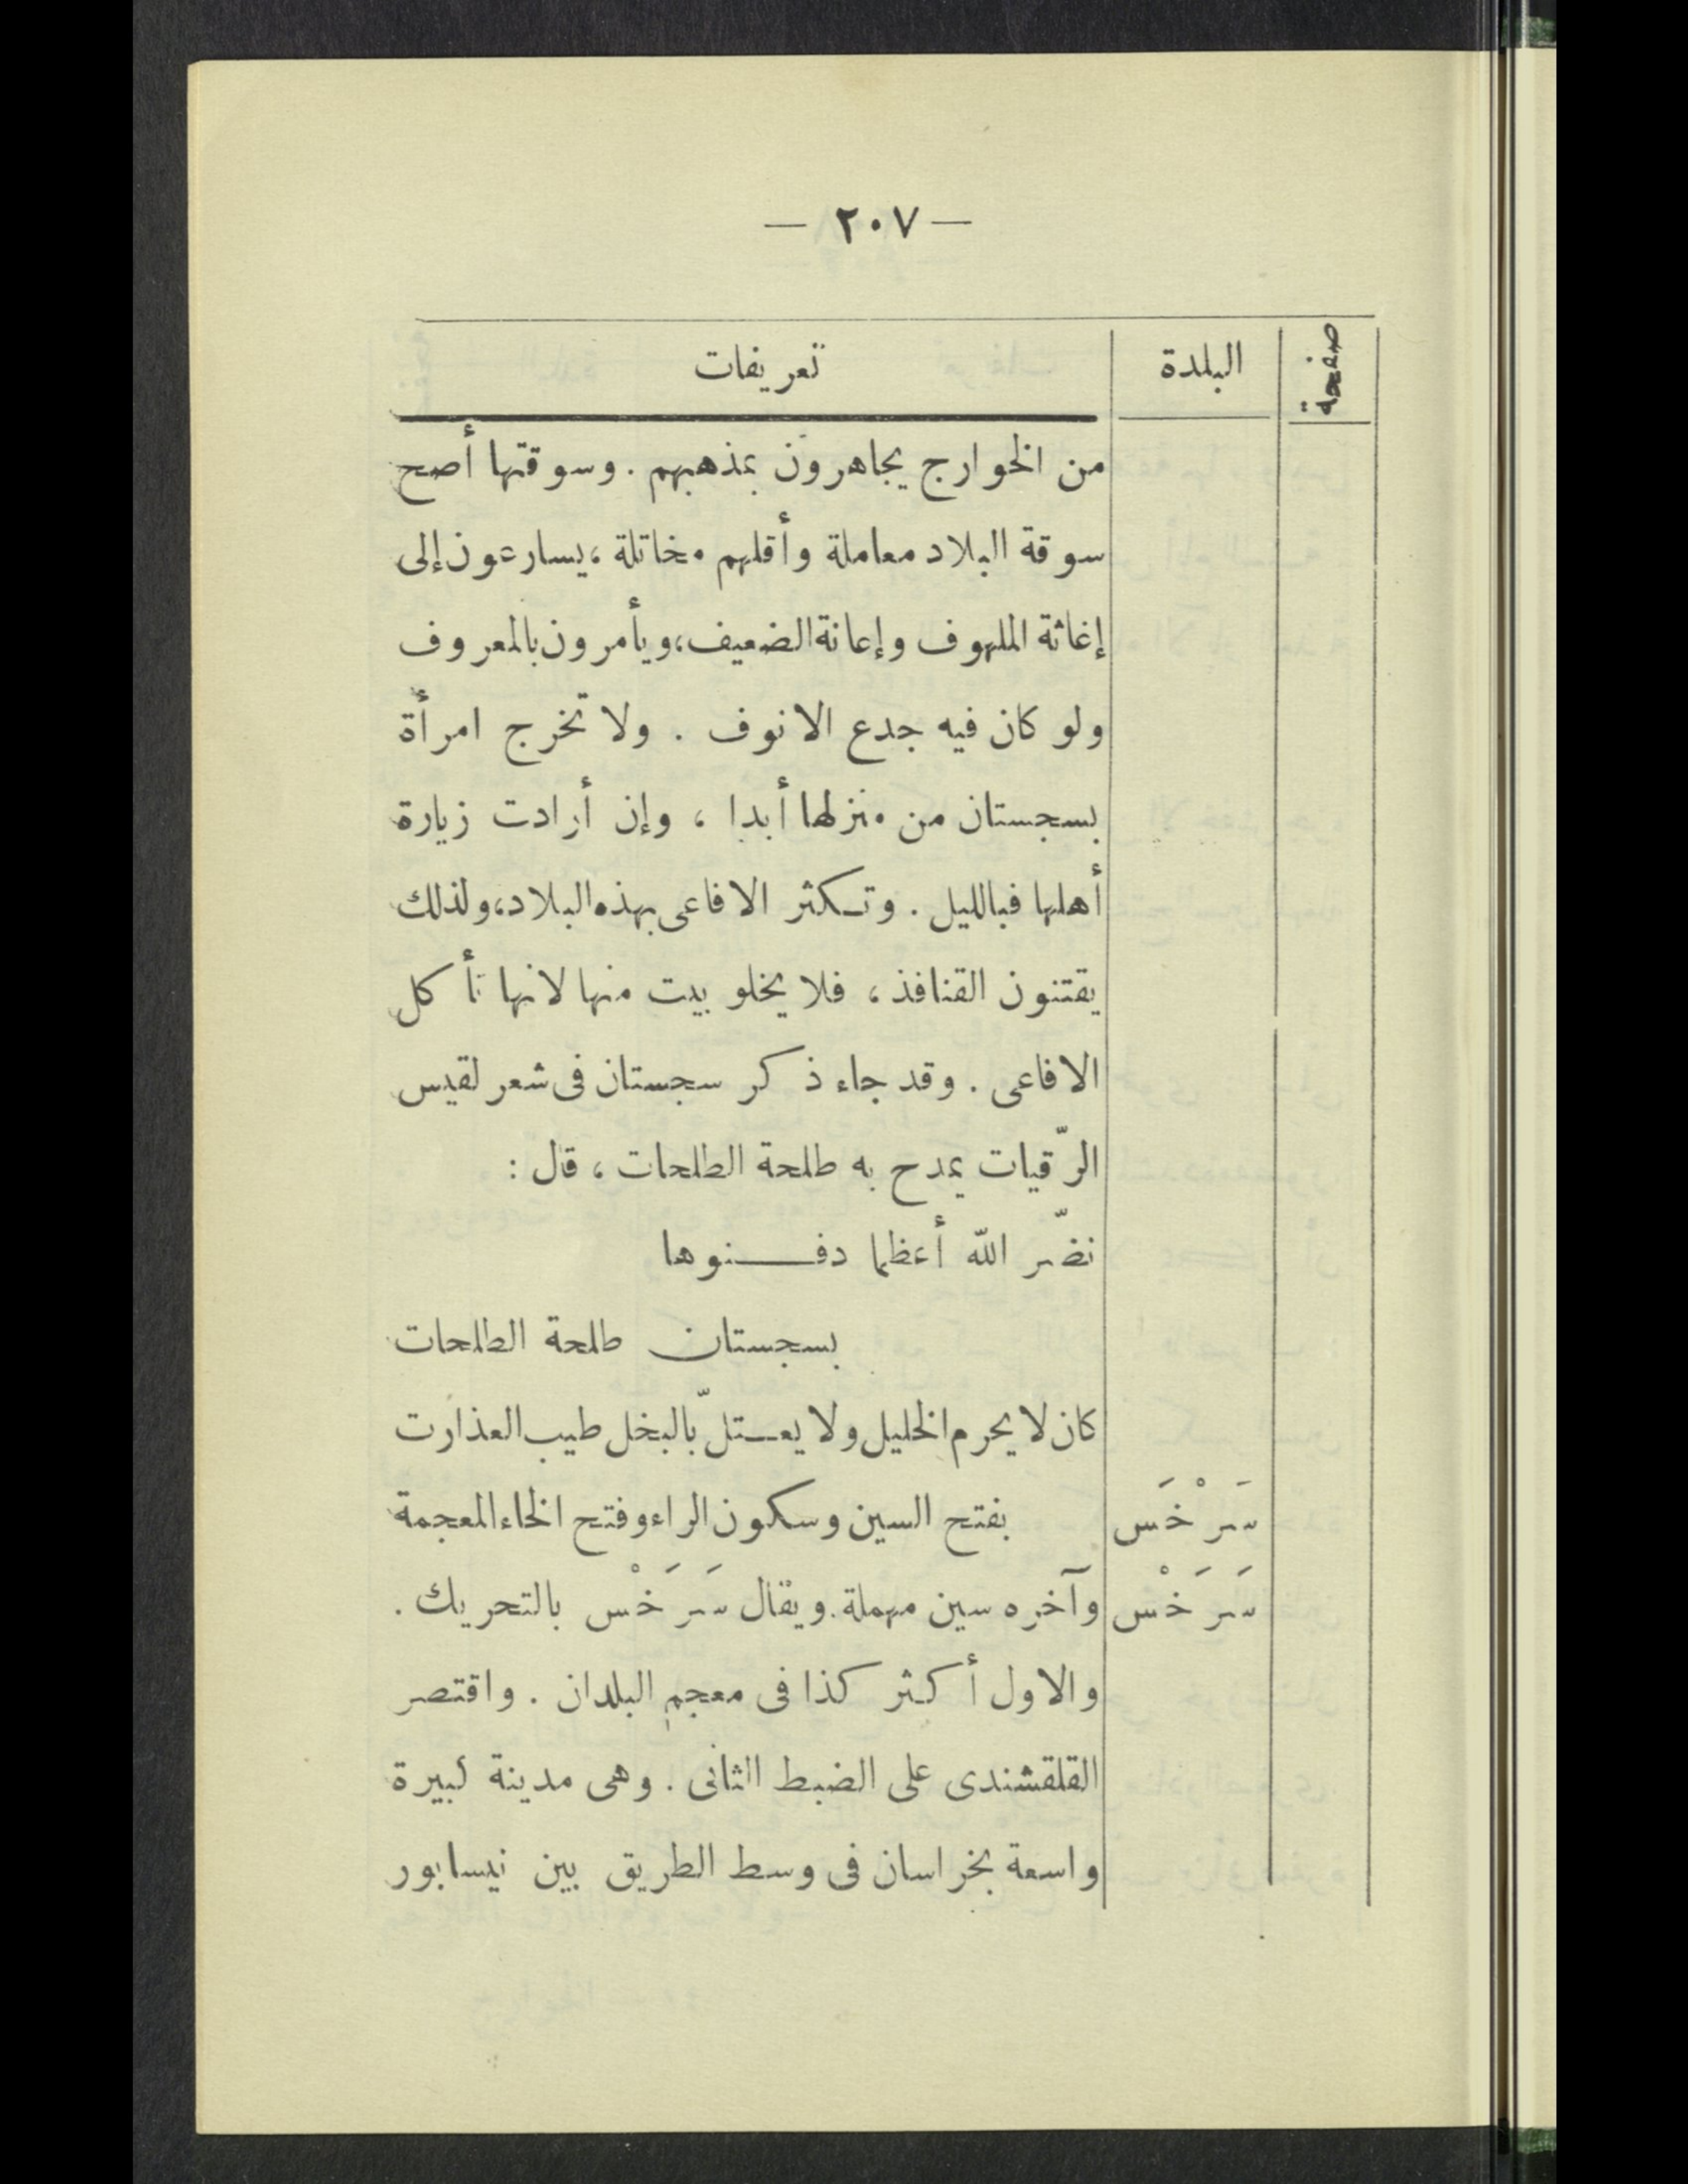 — ٢٠٧ —
صفحة البلدة تعريفات
من الخوارج يجاهرون بمذهبهم . وسوقتها أصح
سوقة البلاد معاملة وأقلهم مخاتلة ، يسارعون إلى
إغاثة الملهوف وإعانة الضعيف، ويأمرون بالمعروف
ولو كان فيه جدع الانوف . ولا تخرج امرأة
بسجستان من منزلها أبدا ، وإن أرادت زيارة
أهلها فبالليل . وتكثر الافاعى بهذه البلاد، ولذلك
يقتنون القنافذ ، فلا يخلو بيت منها لانها تأكل
الافاعى . وقد جاء ذكر سجستان فى شعر لقيس
الرّقيات يمدح به طلحة الطلحات ، قال :
نضّر الله أعظما دفنوها
بسجستان طلحة الطلحات
كان لا يحرم الخليل ولا يعتلّ بالبخل طيب العذارت
سَرْخَس بفتح السين وسكون الراء وفتح الخاء المعجمة
سَرَخْس وآخره سين مهملة. ويقال سَرَخْس بالتحريك .
والاول أكثر كذا فى معجم البلدان . واقتصر
القلقشندى على الضبط الثانى . وهى مدينة كبيرة
واسعة بخراسان فى وسط الطريق بين نيسابور